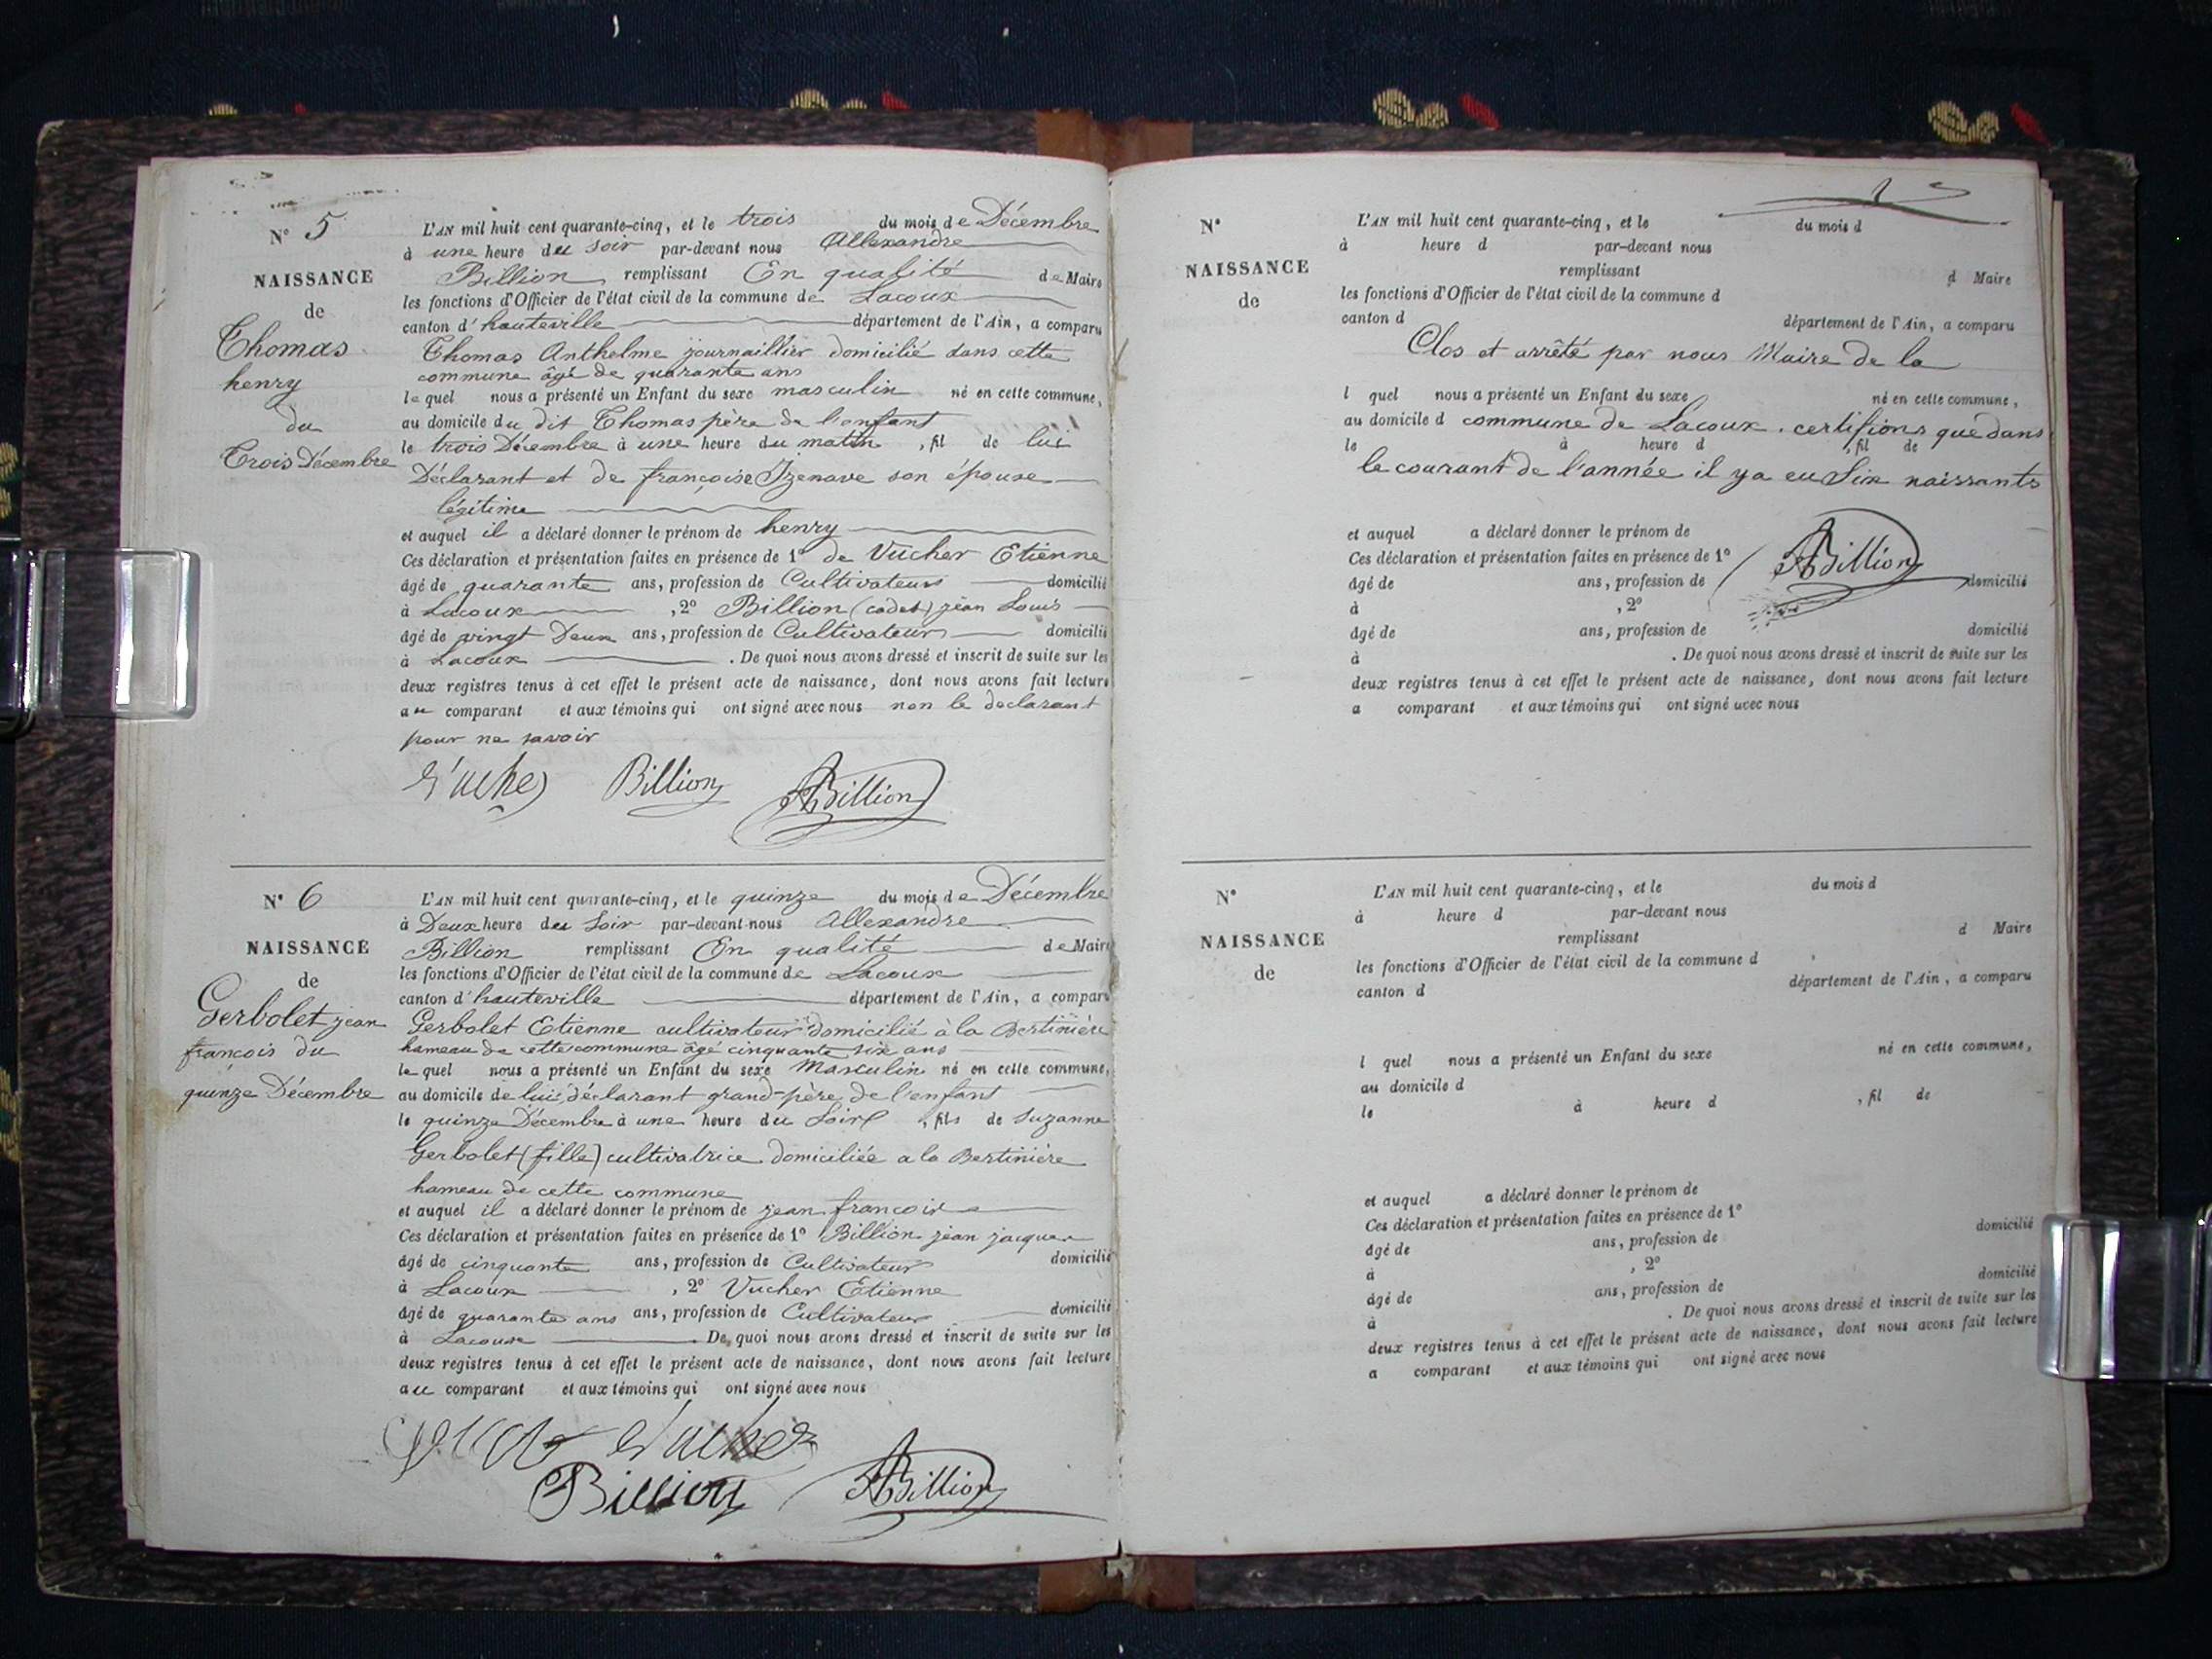 N° 5
NAISSANCE
de
Thomas
henry
du
Trois Décembre
L'AN mil huit cent quarante-cinq, et le trois du mois de Décembre
à une heure du soir par-devant nous Allexandre
Billion remplissant En qualité de Maire
les fonctions d'Officier de l'état civil de la commune de Lacoux
canton d'hauteville département de l'Ain, a comparu
Thomas Anthelme journaillier domicilié dans cette
commune âgé de quarante ans
lequel nous a présenté un Enfant du sexe masculin né en cette commune,
au domicile du dit Thomas père de l'enfant
le trois Décembre à une heure du matin, fil de lui
Déclarant et de françoise Izenave son épouse
légitime
et auquel il a déclaré donner le prénom de henry
Ces déclaration et présentation faites en présence de 1° de Vucher Etienne
âgé de quarante ans, profession de Cultivateur domicilié
à Lacoux, 2° Billion (cadet) jean Louis
âgé de vingt Deux ans, profession de Cultivateur domicilié
à Lacoux. De quoi nous avons dressé et inscrit de suite sur les
deux registres tenus à cet effet le présent acte de naissance, dont nous avons fait lecture
au comparant et aux témoins qui ont signé avec nous non le declarant
pour ne savoir
Billion ABillion
N° 6
NAISSANCE
de
Gerbolet jean
françois du
quinze Décembre
L'AN mil huit cent quarante-cinq, et le quinze du mois de Décembre
à Deux heure du Soir par-devant nous Allexandre
Billion remplissant En qualité de Maire
les fonctions d'Officier de l'état civil de la commune de Lacoux
canton d'hauteville département de l'Ain, a comparu
Gerbolet Etienne cultivateur domicilié à la Bertinière
hameau de cette commune âgé cinquante six ans
lequel nous a présenté un Enfant du sexe Masculin né en cette commune,
au domicile de lui déclarant grand-père de l'enfant
le quinze Décembre à une heure du Soir, fils de Suzanne
Gerbolet (fille) cultivatrice domiciliée a la Bertinière
hameau de cette commune
et auquel il a déclaré donner le prénom de jean françois
Ces déclaration et présentation faites en présence de 1° Billion jean jacques
âgé de cinquante ans, profession de Cultivateur domicilié
à Lacoux, 2° Vucher Etienne
âgé de quarante ans ans, profession de Cultivateur domicilié
à Lacoux. De quoi nous avons dressé et inscrit de suite sur les
deux registres tenus à cet effet le présent acte de naissance, dont nous avons fait lecture
au comparant et aux témoins qui ont signé avec nous
Billion ABillion
N°
NAISSANCE
de
L'AN mil huit cent quarante-cinq, et le du mois d
à heure d par-devant nous
remplissant d Maire
les fonctions d'Officier de l'état civil de la commune d
canton d département de l'Ain, a comparu
Clos et arrêté par nous Maire de la
l quel nous a présenté un Enfant du sexe né en cette commune,
au domicile d commune de Lacoux. certifions que dans
le à heure d, fil de
le courant de l'année il y a eu Six naissants
et auquel a déclaré donner le prénom de
Ces déclaration et présentation faites en présence de 1° ABillion
âgé de ans, profession de domicilié
à, 2°
âgé de ans, profession de domicilié
à. De quoi nous avons dressé et inscrit de suite sur les
deux registres tenus à cet effet le présent acte de naissance, dont nous avons fait lecture
a comparant et aux témoins qui ont signé avec nous
N°
NAISSANCE
de
L'AN mil huit cent quarante-cinq, et le du mois d
à heure d par-devant nous
remplissant d Maire
les fonctions d'Officier de l'état civil de la commune d
canton d département de l'Ain, a comparu
l quel nous a présenté un Enfant du sexe né en cette commune,
au domicile d
le à heure d, fil de
et auquel a déclaré donner le prénom de
Ces déclaration et présentation faites en présence de 1°
âgé de ans, profession de domicilié
à, 2°
âgé de ans, profession de domicilié
à. De quoi nous avons dressé et inscrit de suite sur les
deux registres tenus à cet effet le présent acte de naissance, dont nous avons fait lecture
a comparant et aux témoins qui ont signé avec nous